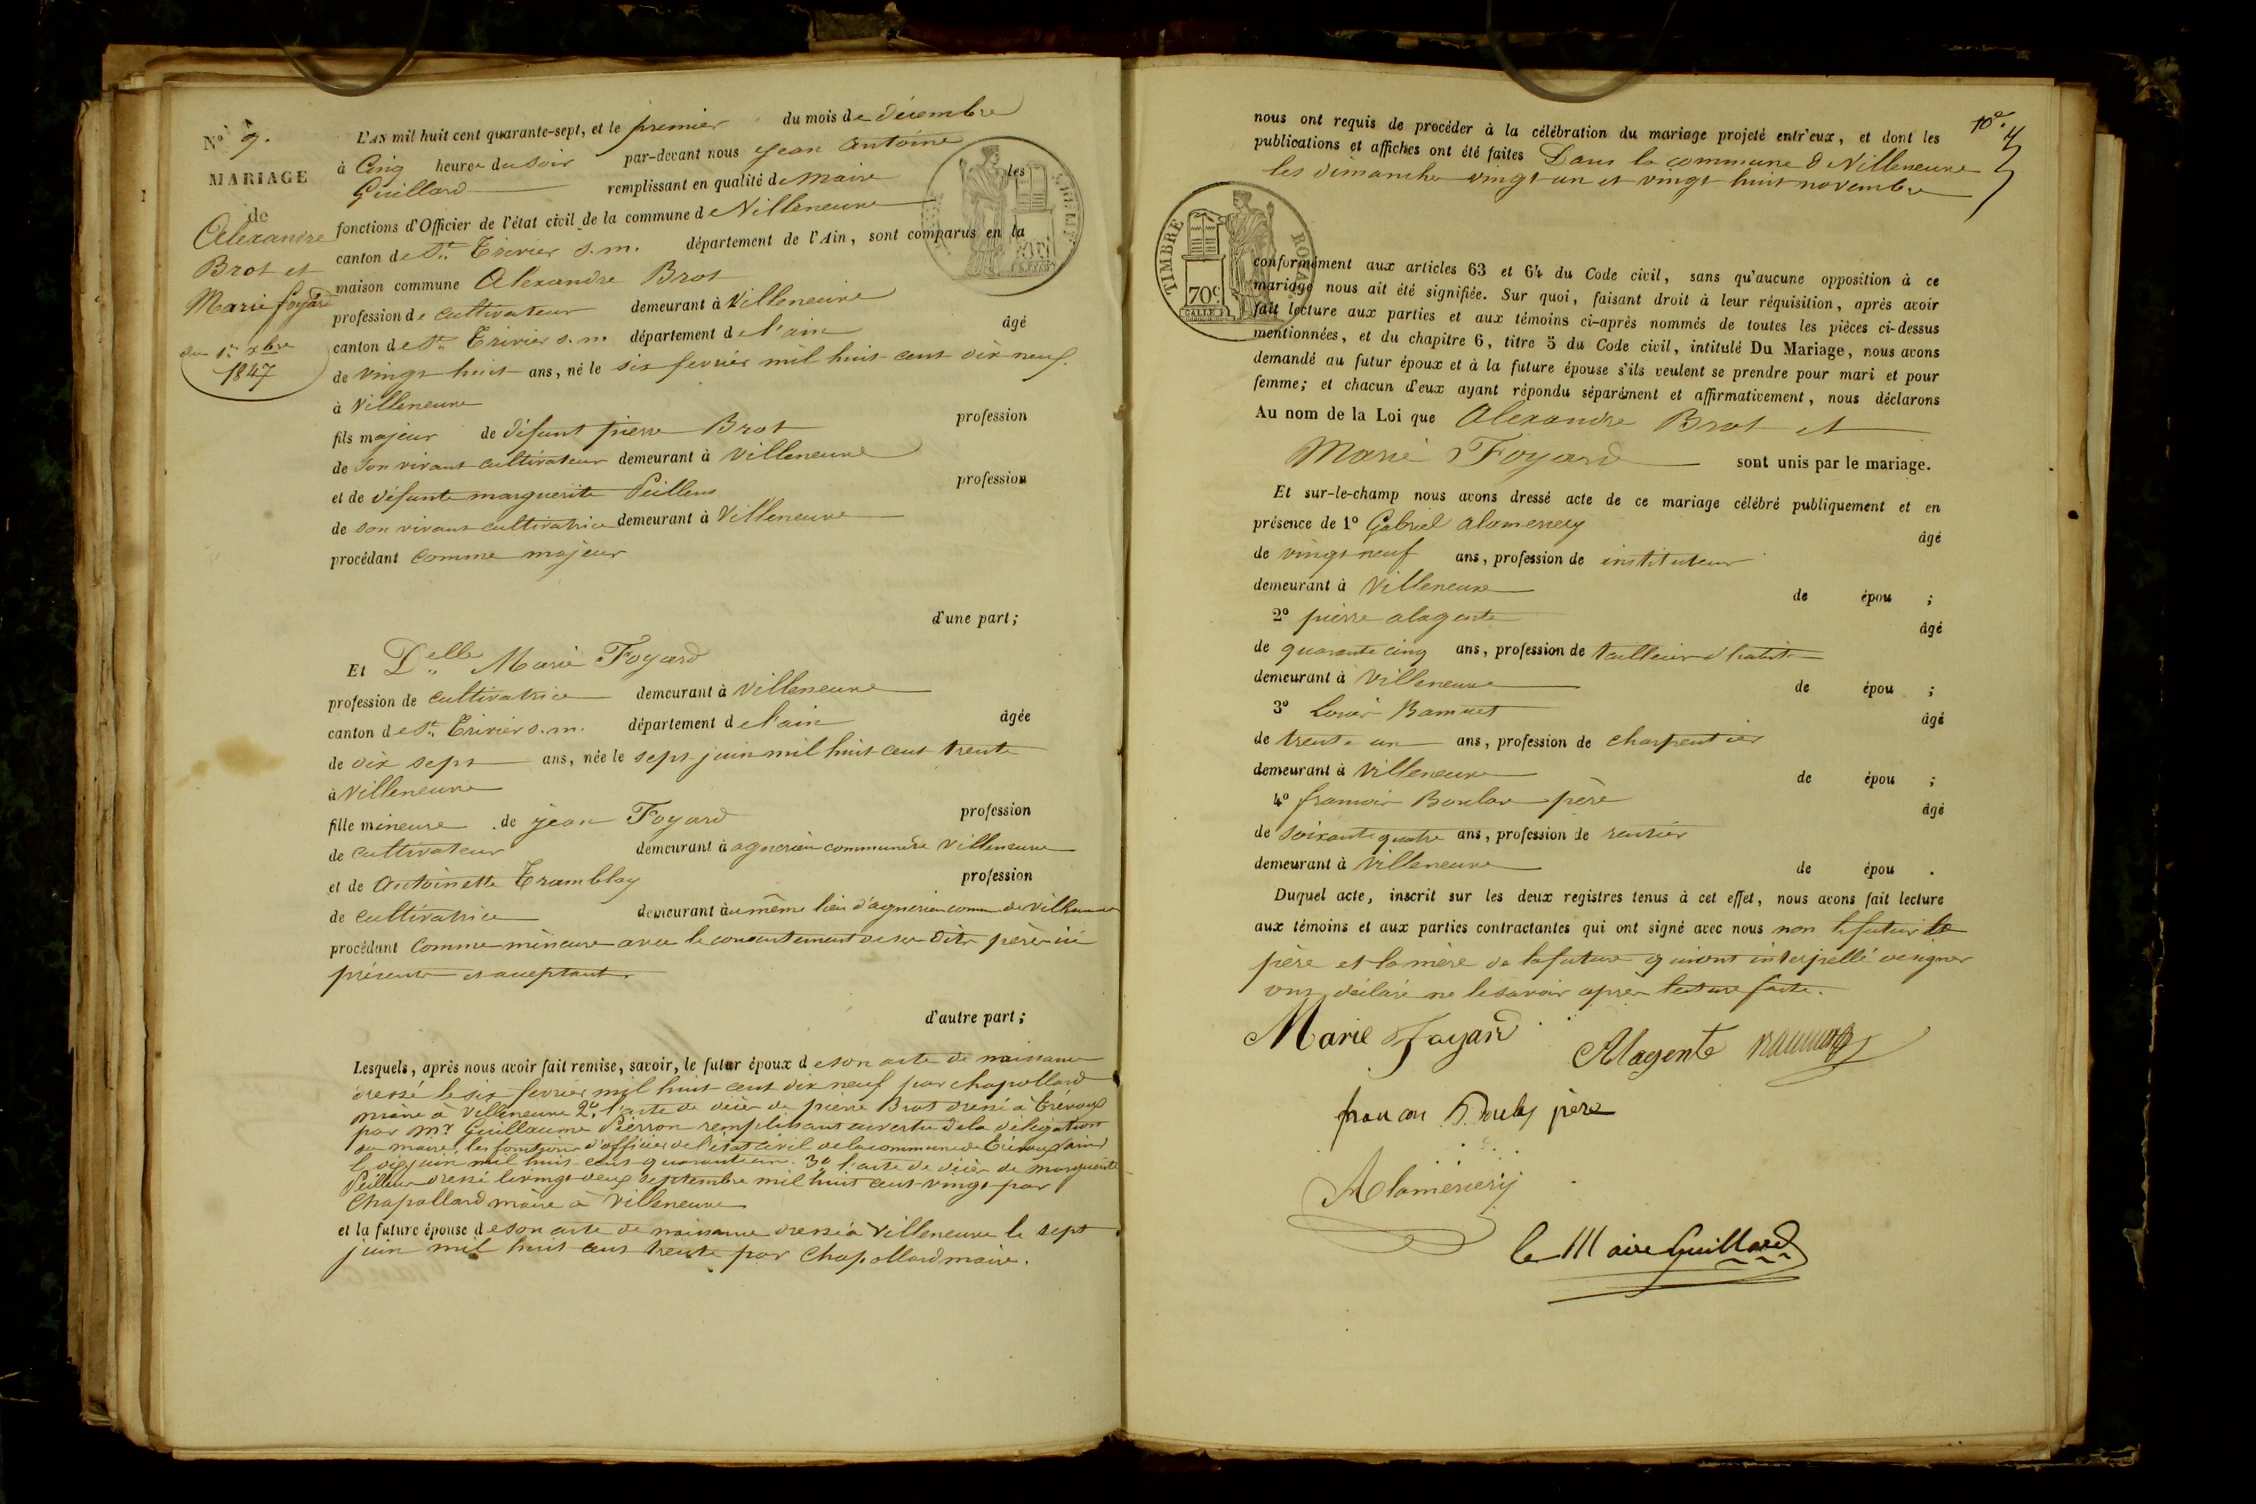 N° 9.
MARIAGE
de
Alexandre
Brot et
Marie foyard
du 1er xbre
1847
L'AN mil huit cent quarante-sept, et le premier du mois de décembre
à Cinq heures du soir par-devant nous jean antoine
Guillard remplissant en qualité de maire les
fonctions d'Officier de l'état civil de la commune de Villeneuve
canton de St. Trivier s.m. département de l'Ain, sont comparus en la
maison commune Alexandre Brot
profession de cultivateur demeurant à Villeneuve
canton de St. Trivier s.m. département de l'ain âgé
de vingt huit ans, né le six fevrier mil huit cent dix neuf
à Villeneuve
fils majeur de défunt pierre Brot profession
de son vivant cultivateur demeurant à Villeneuve
et de défunte marguerite Peilleux profession
de son vivant cultivatrice demeurant à Villeneuve
procédant comme majeur
d'une part;
Et Delle Marie Foyard
profession de cultivatrice demeurant à Villeneuve
canton de St. Trivier s.m. département de l'ain âgée
de dix sept ans, née le sept juin mil huit cent trente
à Villeneuve
fille mineure de jean Foyard profession
de cultivateur demeurant à agnereins commune de Villeneuve
et de antoinette Tramblay profession
de cultivatrice demeurant au même lieu d'agnereins comm de Villeneuve
procédant comme mineure avec le consentement de ses dits père ici
présents et acceptant
d'autre part;
Lesquels, après nous avoir fait remise, savoir, le futur époux de son acte de naissance
dressé le six fevrier mil huit cent dix neuf par chapollard
maire à Villeneuve 2° l'acte de décès de pierre Brot dressé à trévoux
par mr Guillaume Pierron remplissant en vertu de la délégation
du maire les fonctions d'officier de l'état civil de la commune de Trévoux
le dix juin mil huit cent quarante 3° l'acte de décès de marguerite
Peilleux dressé le vingt deux septembre mil huit cent vingt par
Chapollard maire à Villeneuve
et la future épouse de son acte de naissance dressé à Villeneuve le sept
juin mil huit cent trente par Chapollard maire.
10e
nous ont requis de procéder à la célébration du mariage projeté entr'eux, et dont les
publications et affiches ont été faites Dans la commune d Villeneuve
les dimanche vingt un et vingt huit novembre
TIMBRE ROYAL
70c
conformément aux articles 63 et 64 du Code civil, sans qu'aucune opposition à ce
mariage nous ait été signifiée. Sur quoi, faisant droit à leur réquisition, après avoir
fait lecture aux parties et aux témoins ci-après nommés de toutes les pièces ci-dessus
mentionnées, et du chapitre 6, titre 5 du Code civil, intitulé Du Mariage, nous avons
demandé au futur époux et à la future épouse s'ils veulent se prendre pour mari et pour
femme; et chacun d'eux ayant répondu séparément et affirmativement, nous déclarons
Au nom de la Loi que Alexandre Brot et
Marie Foyard sont unis par le mariage.
Et sur-le-champ nous avons dressé acte de ce mariage célébré publiquement et en
présence de 1° Gabriel alamercery âgé
de vingt neuf ans, profession de instituteur
demeurant à Villeneuve de épou ;
2° pierre alagente âgé
de quarante cinq ans, profession de tailleur d'habit
demeurant à Villeneuve de épou ;
3° Louis Bamuet âgé
de trente un ans, profession de charpentier
demeurant à Villeneuve de épou ;
4° francois Boulay père âgé
de soixante quatre ans, profession de rentier
demeurant à Villeneuve de épou .
Duquel acte, inscrit sur les deux registres tenus à cet effet, nous avons fait lecture
aux témoins et aux parties contractantes qui ont signé avec nous non le futur le
père et la mère de la future qui ont interpellé de signer
ont déclaré ne le savoir après lecture faite.
Marie Foyard
Alagente
Boulay père
Alamercery
le Maire Guillard